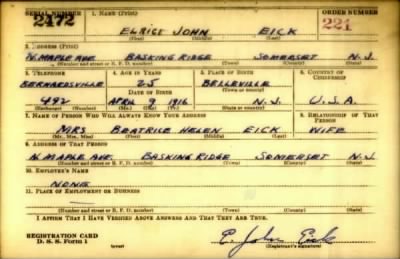 SERIAL NUMBER 1. NAME (Print) ORDER NUMBER
2472 ELRIGE JOHN EICK 221
(First) (Middle) (Last)
2. ADDRESS (Print)
N. MAPLE AVE. BASKING RIDGE SOMERSET N.J.
(Number and street or R. F. D. number) (Town) (County) (State)
3. TELEPHONE 4. AGE IN YEARS 5. PLACE OF BIRTH 6. COUNTRY OF CITIZENSHIP
BERNARDSVILLE 25 BELLEVILLE
DATE OF BIRTH (Town or county)
492 APRIL 9 1916 N.J. U.S.A.
(Exchange) (Number) (Mo.) (Day) (Yr.) (State or country)
7. NAME OF PERSON WHO WILL ALWAYS KNOW YOUR ADDRESS 8. RELATIONSHIP OF THAT PERSON
MRS BEATRICE HELEN EICK WIFE
(Mr., Mrs., Miss) (First) (Middle) (Last)
9. ADDRESS OF THAT PERSON
N. MAPLE AVE. BASKING RIDGE SOMERSET N.J.
(Number and street or R. F. D. number) (Town) (County) (State)
10. EMPLOYER'S NAME
NONE
11. PLACE OF EMPLOYMENT OR BUSINESS
(Number and street or R. F. D. number) (Town) (County) (State)
I AFFIRM THAT I HAVE VERIFIED ABOVE ANSWERS AND THAT THEY ARE TRUE.
REGISTRATION CARD E. John Eick
D. S. S. Form 1 (over) (Registrant's signature)